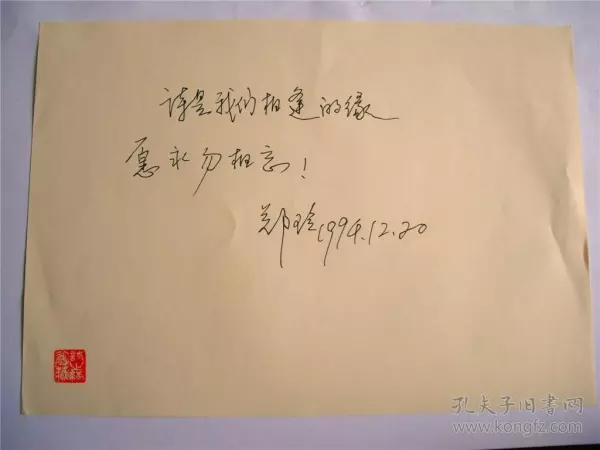 诗是我们相逢的缘
愿永勿相忘!
郑玲1994.12.20
孔夫子旧書网
www.kongfz.com